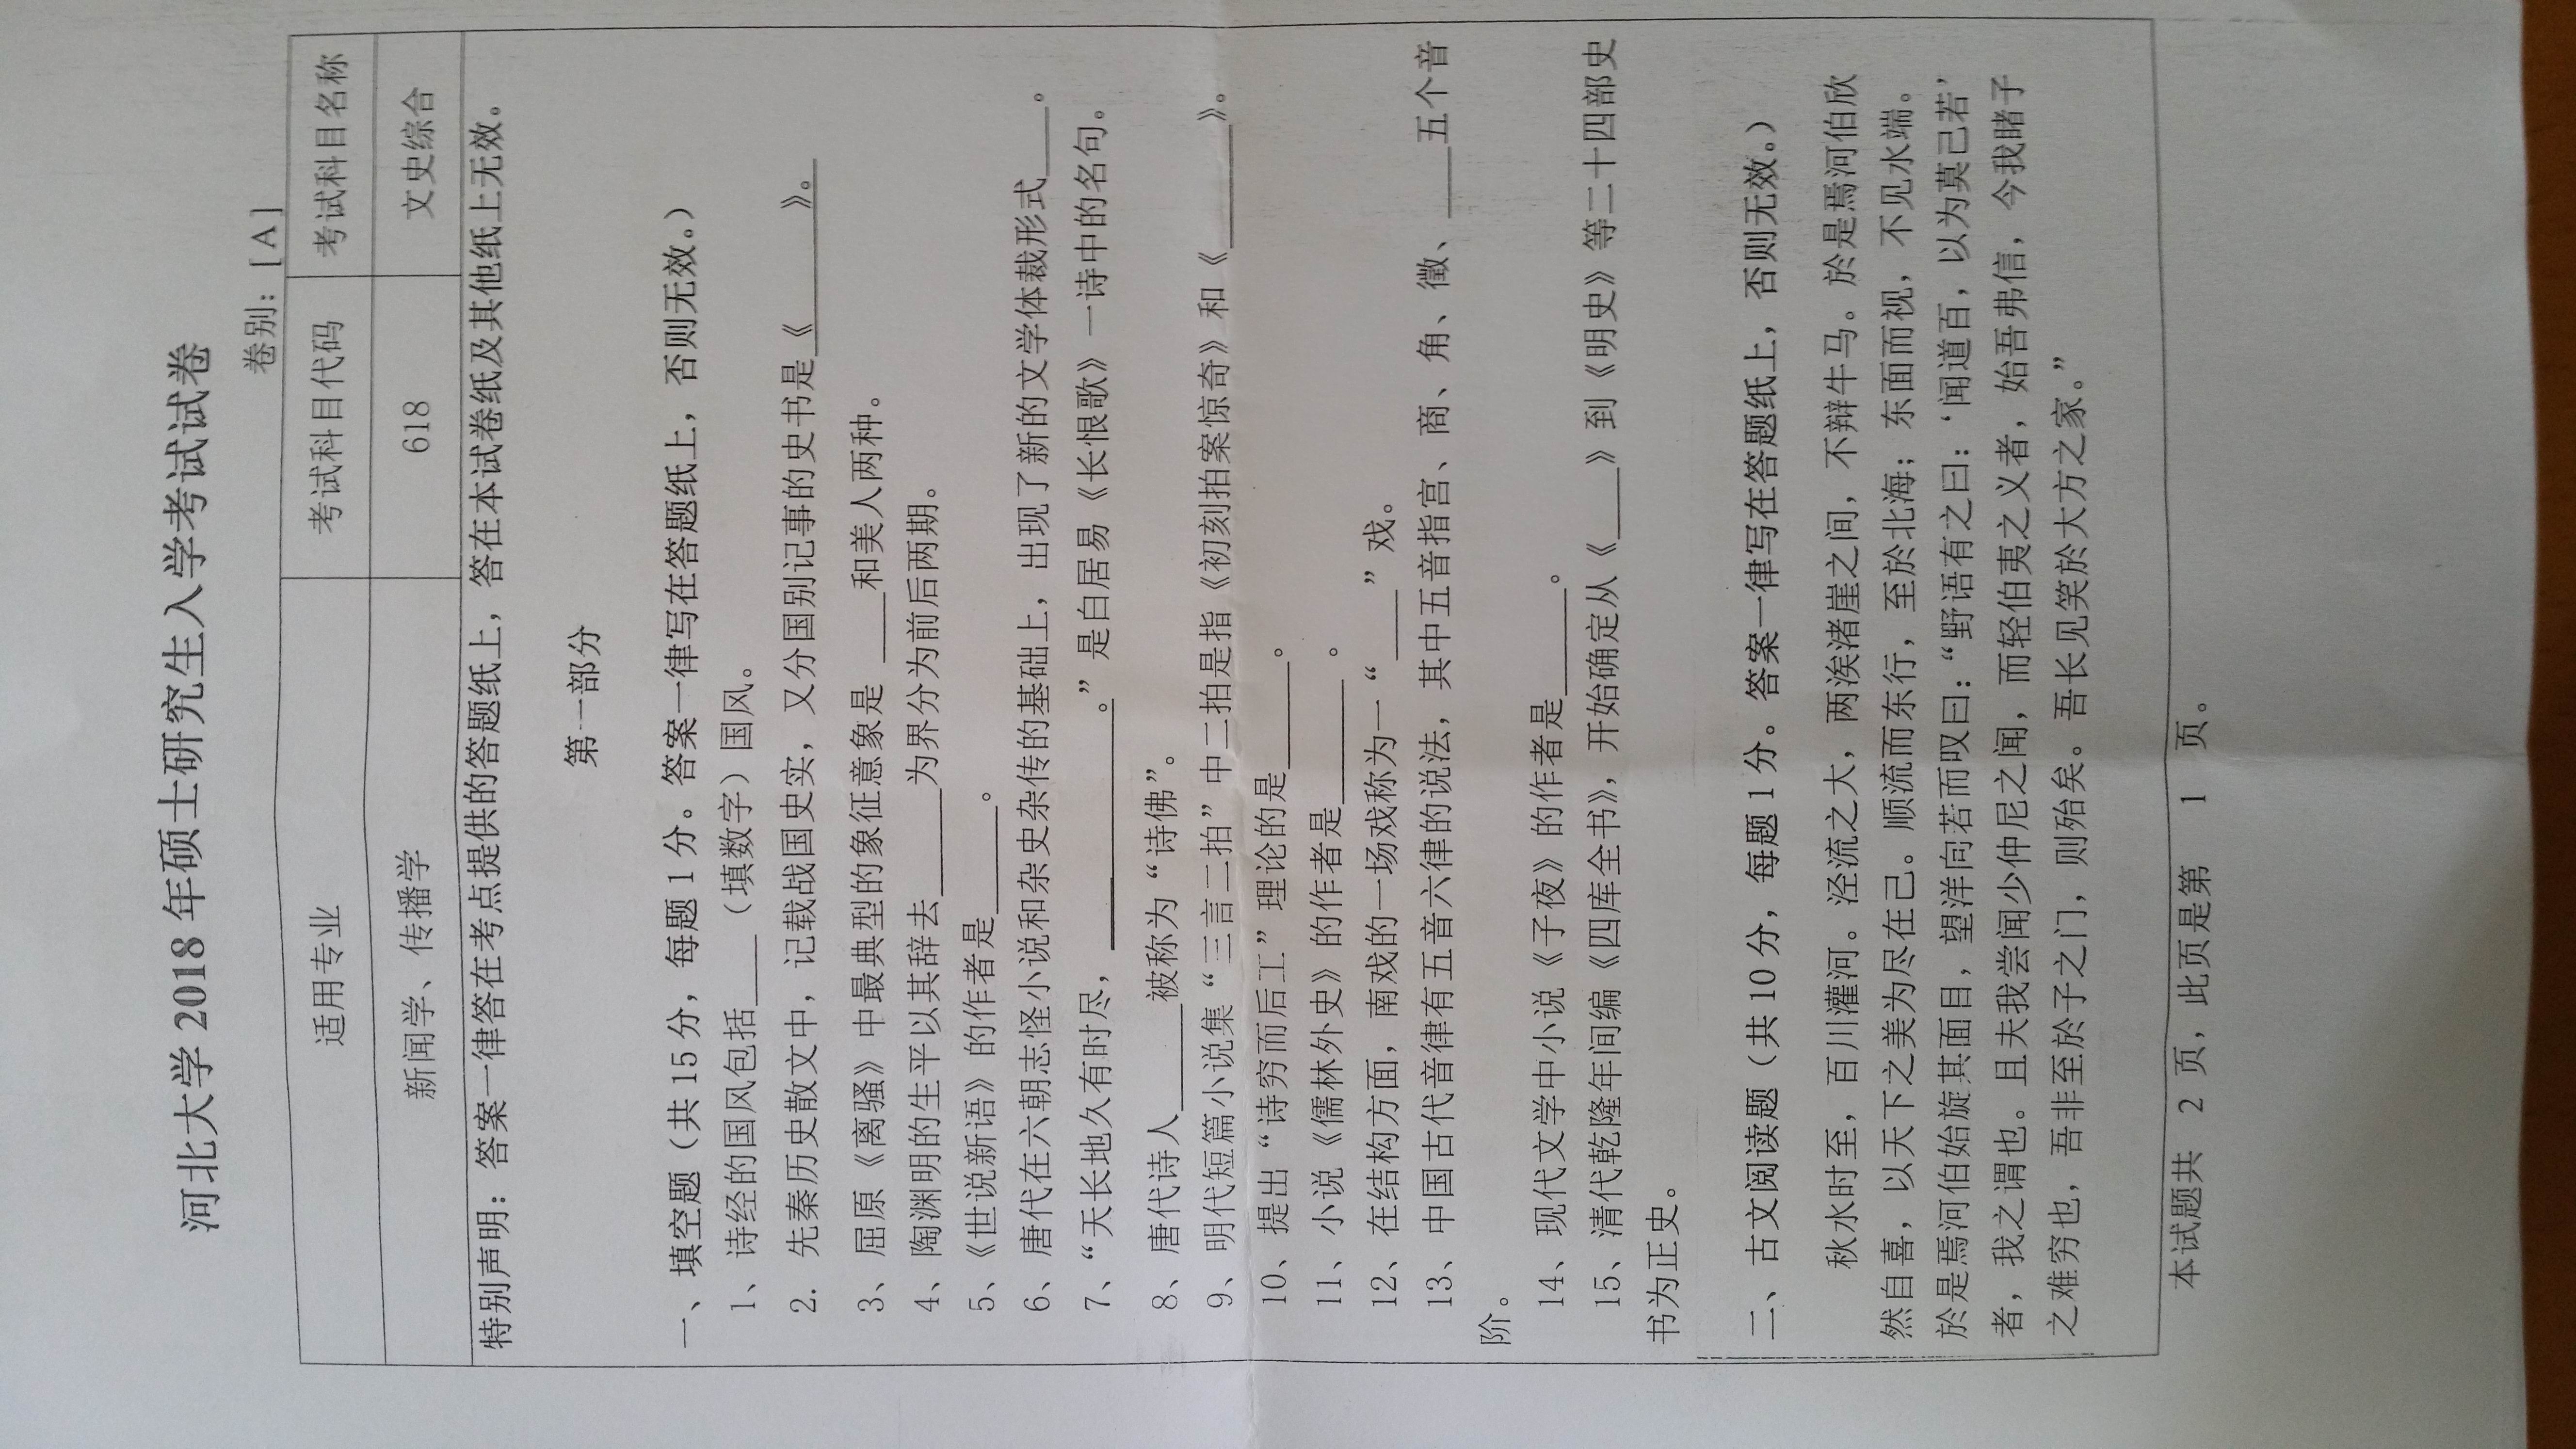 河北大学 2018 年硕士研究生入学考试试卷
卷别：[A]
适用专业 考试科目代码 考试科目名称
新闻学、传播学 618 文史综合
特别声明：答案一律答在考点提供的答题纸上，答在本试卷纸及其他纸上无效。
第一部分
一、填空题（共 15 分，每题 1 分。答案一律写在答题纸上，否则无效。）
1、诗经的国风包括____（填数字）国风。
2. 先秦历史散文中，记载战国史实，又分国别记事的史书是《______》。
3、屈原《离骚》中最典型的象征意象是 ____和美人两种。
4、陶渊明的生平以其辞去______为界分为前后两期。
5、《世说新语》的作者是______。
6、唐代在六朝志怪小说和杂史杂传的基础上，出现了新的文学体裁形式____。
7、“天长地久有时尽，____________。”是白居易《长恨歌》一诗中的名句。
8、唐代诗人______被称为“诗佛”。
9、明代短篇小说集“三言二拍”中二拍是指《初刻拍案惊奇》和《______》。
10、提出“诗穷而后工”理论的是______。
11、小说《儒林外史》的作者是______。
12、在结构方面，南戏的一场戏称为一“____”戏。
13、中国古代音律有五音六律的说法，其中五音指宫、商、角、徵、____五个音
阶。
14、现代文学中小说《子夜》的作者是______。
15、清代乾隆年间编《四库全书》，开始确定从《____》到《明史》等二十四部史
书为正史。
二、古文阅读题（共 10 分，每题 1 分。答案一律写在答题纸上，否则无效。）
秋水时至，百川灌河。泾流之大，两涘渚崖之间，不辩牛马。於是焉河伯欣
然自喜，以天下之美为尽在己。顺流而东行，至於北海；东面而视，不见水端。
於是焉河伯始旋其面目，望洋向若而叹曰：“野语有之曰：‘闻道百，以为莫己若’
者，我之谓也。且夫我尝闻少仲尼之闻，而轻伯夷之义者，始吾弗信，今我睹子
之难穷也，吾非至於子之门，则殆矣。吾长见笑於大方之家。”
本试题共 2 页，此页是第 1 页。